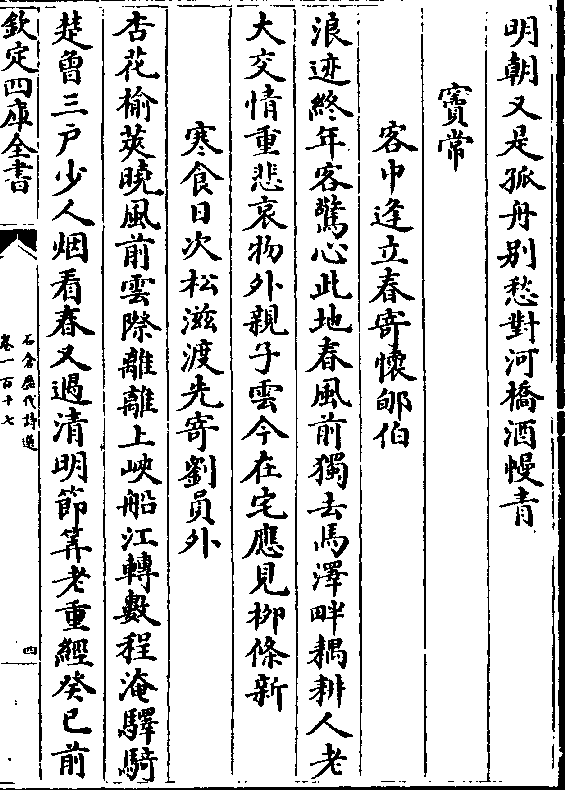 明朝又是孤舟别愁對河橋酒幔青
竇常
客中逢立春寄懷邠伯
浪迹終年客驚心此地春風前獨去馬澤畔耦耕人老
大交情重悲哀物外親子雲今在宅應見栁條新
寒食日次松滋渡先寄劉員外
杏花榆莢曉風前雲際離離上峽船江轉數程淹驛騎
楚曾三戸少人烟看春又過清明節筭老重經癸巳前
欽定四庫全書
石倉歷代詩選
卷一百十七
四